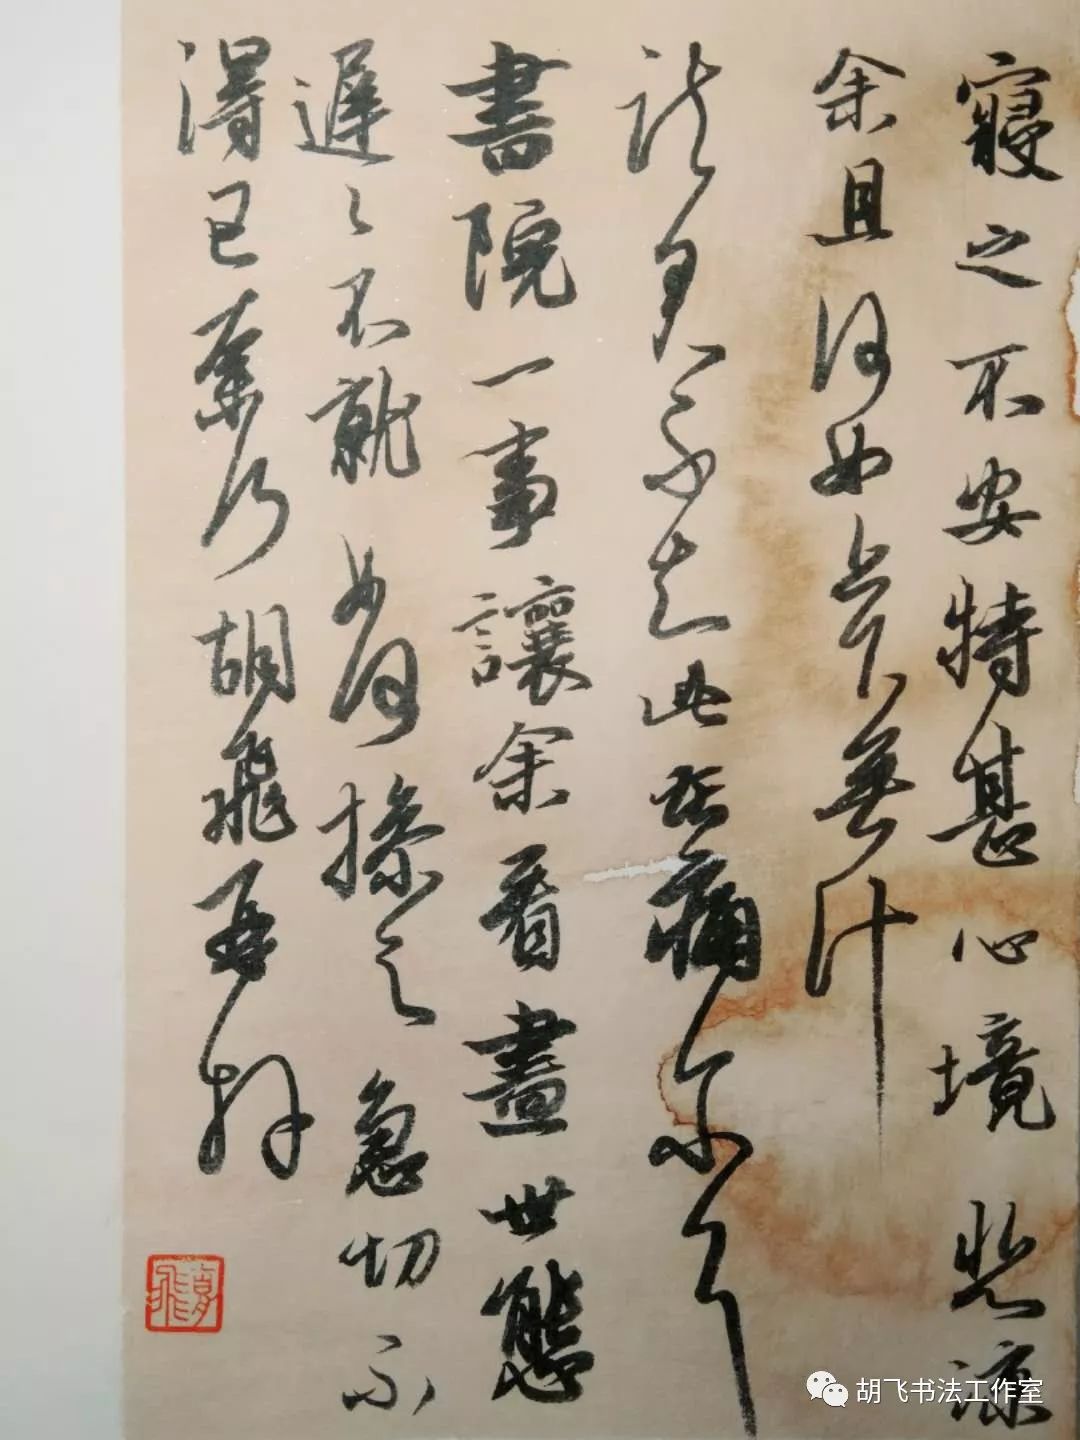 寢之不安特甚心境悲涼
余且何如無計
不知此痛
書院一事讓余看盡世態
遲々不就如何操之急切不
得已奈何胡飛再拜
胡飛
胡飞书法工作室